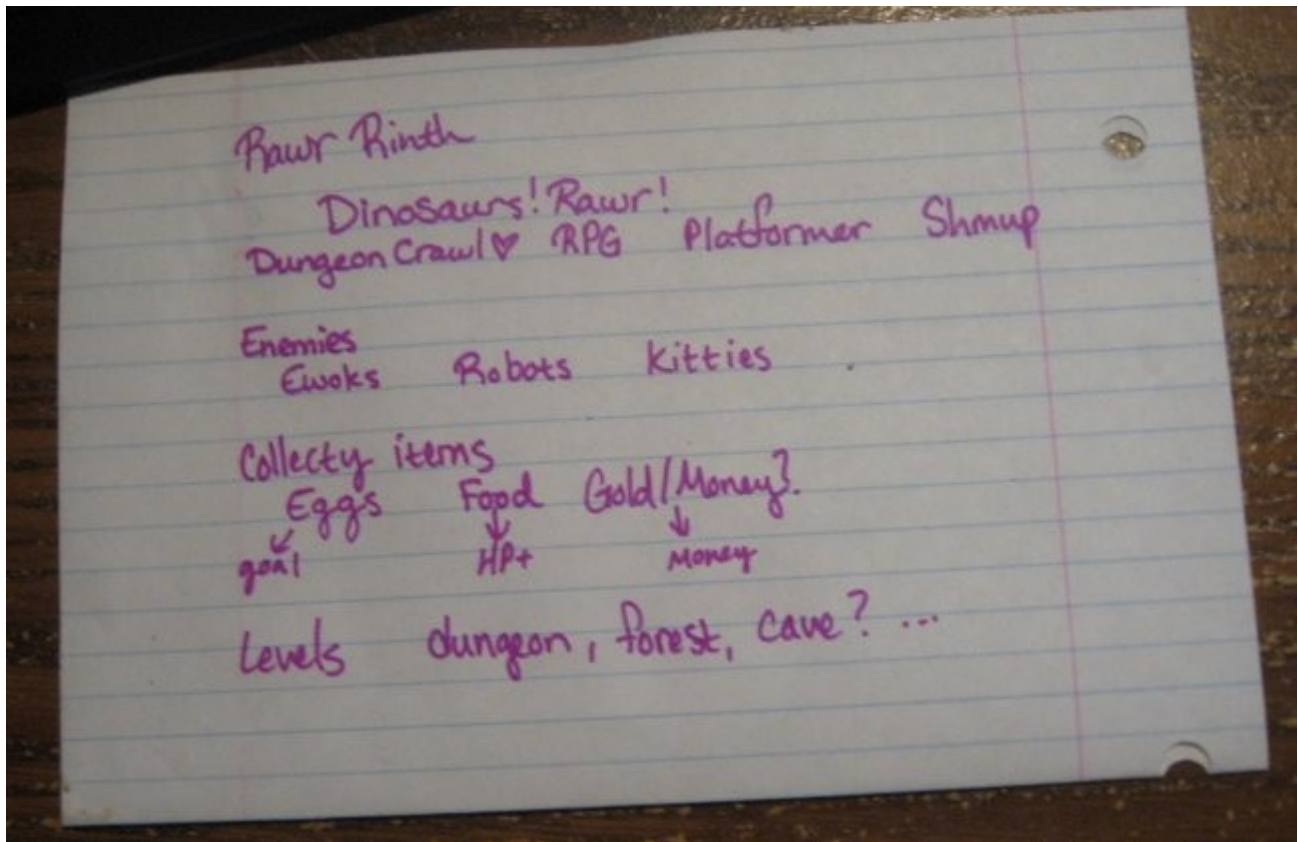 Rawr Rinth
Dinosaurs! Rawr!
Dungeon Crawl♡ RPG Platformer Shmup
Enemies
Ewoks Robots Kitties
Collecty items
Eggs Food Gold/Money?
↙ ↓ ↓
goal HP+ Money
Levels dungeon, forest, cave? ...